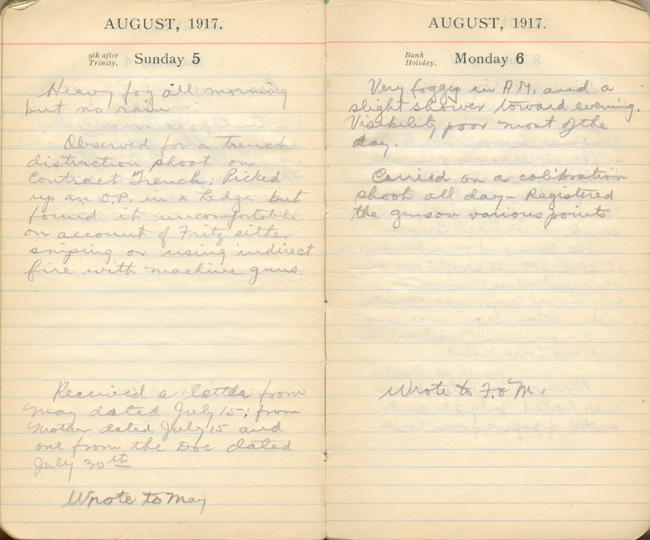 AUGUST, 1917.
9th after
Trinity.
Sunday 5
Heavy fog all morning
but no rain.
Observed for a trench
distruction shoot on
Contract Trench. Picked
up an O.P. in a Ledge but
found it uncomfortable
on account of Fritz either
sniping or using indirect
fire with machine guns.
Received a letter from
May dated July 15-; from
Mother dated July 15 and
one from the Doc dated
July 30th
Wrote to May
AUGUST, 1917.
Bank
Holiday.
Monday 6
Very foggy in A.M. and a
slight shower toward evening.
Visibility poor most of the
day.
Carried on a calibration
shoot all day. Registered
the guns on various points
Wrote to F. & M.